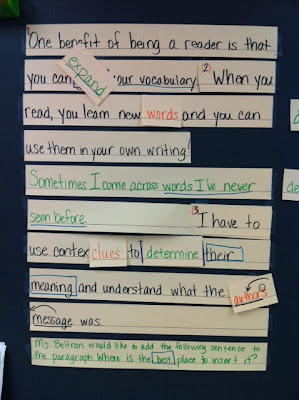 One benefit of being a reader is that
you can expand your vocabulary. (2) When you
read, you learn new words and you can
use them in your own writing!
Sometimes I come across words I've never
seen before (3) I have to
use context clues to determine their
meaning and understand what the author's
message was
Ms. Beltran would like to add the following sentence to
the paragraph. Where is the best place to insert it?